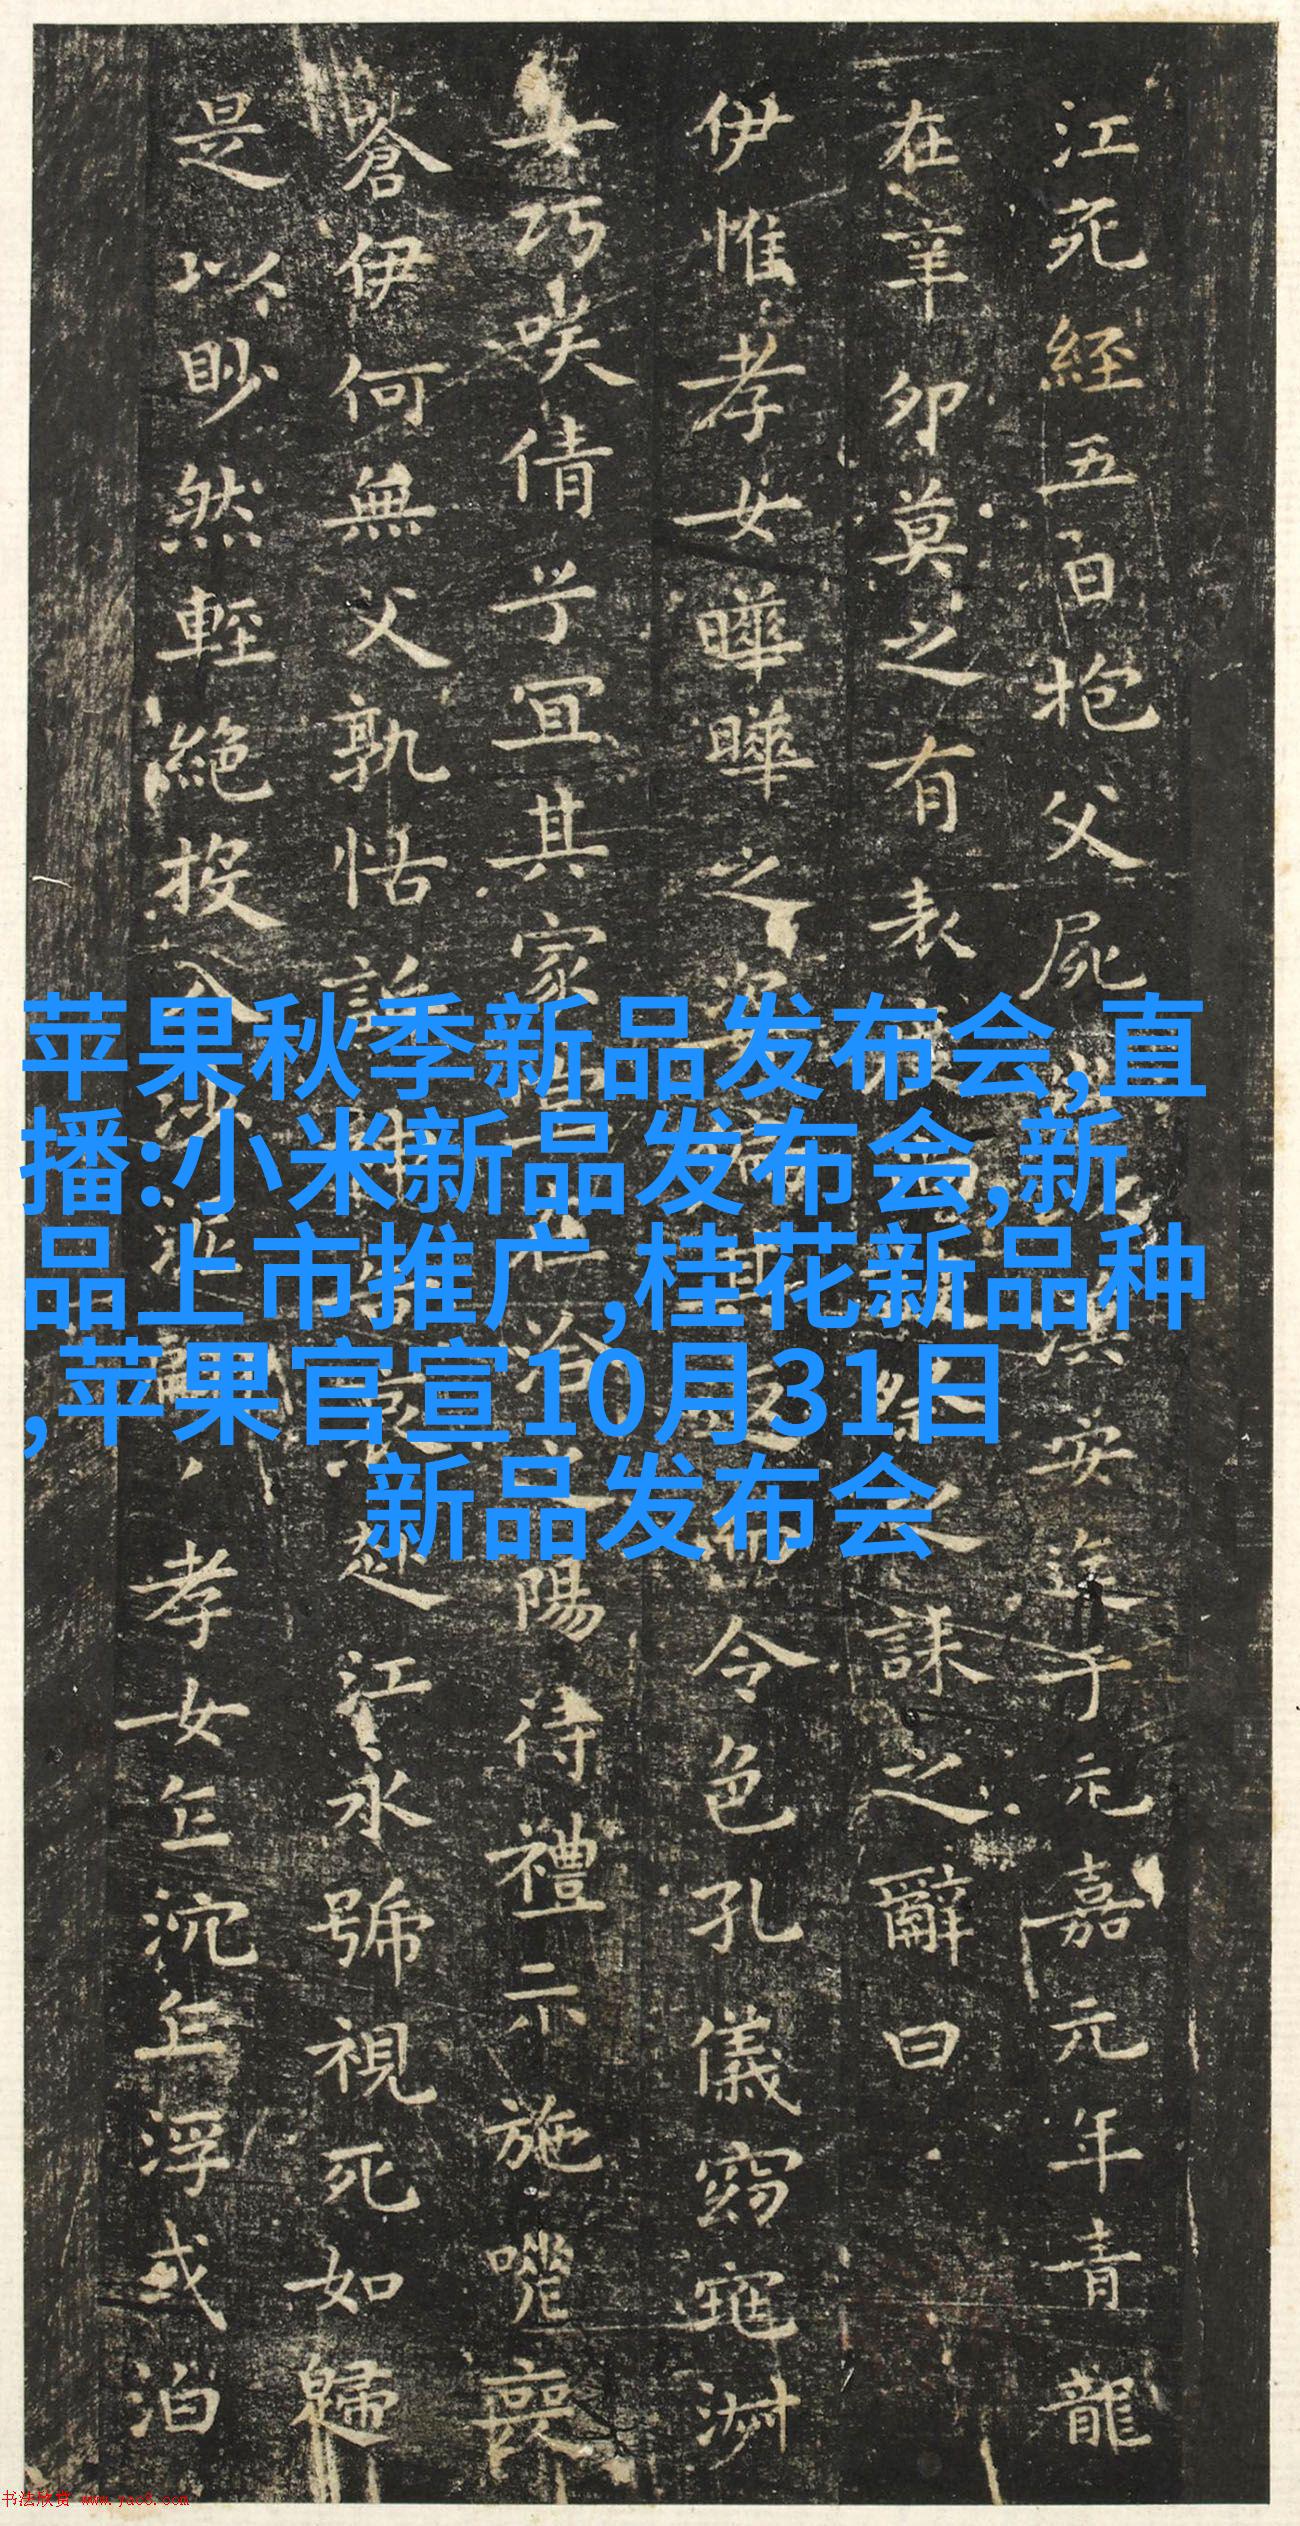 江死經五日抱父屍
于元嘉元年青龍
在辛卯莫之有表
誄之辭曰
伊惟孝女曄曄之
令色孔儀窈窕淑
女巧笑倩兮宜其家
陽待禮未施嗟喪
蒼伊何無父孰怙訴
江永號視死如歸
是以眇然輕絕投入沙
孝女乍沉乍浮或泊
苹果秋季新品发布会,直
播:小米新品发布会,新
品上市推广,桂花新品种
,苹果官宣10月31日
新品发布会
书法欣赏 www.yac8.com